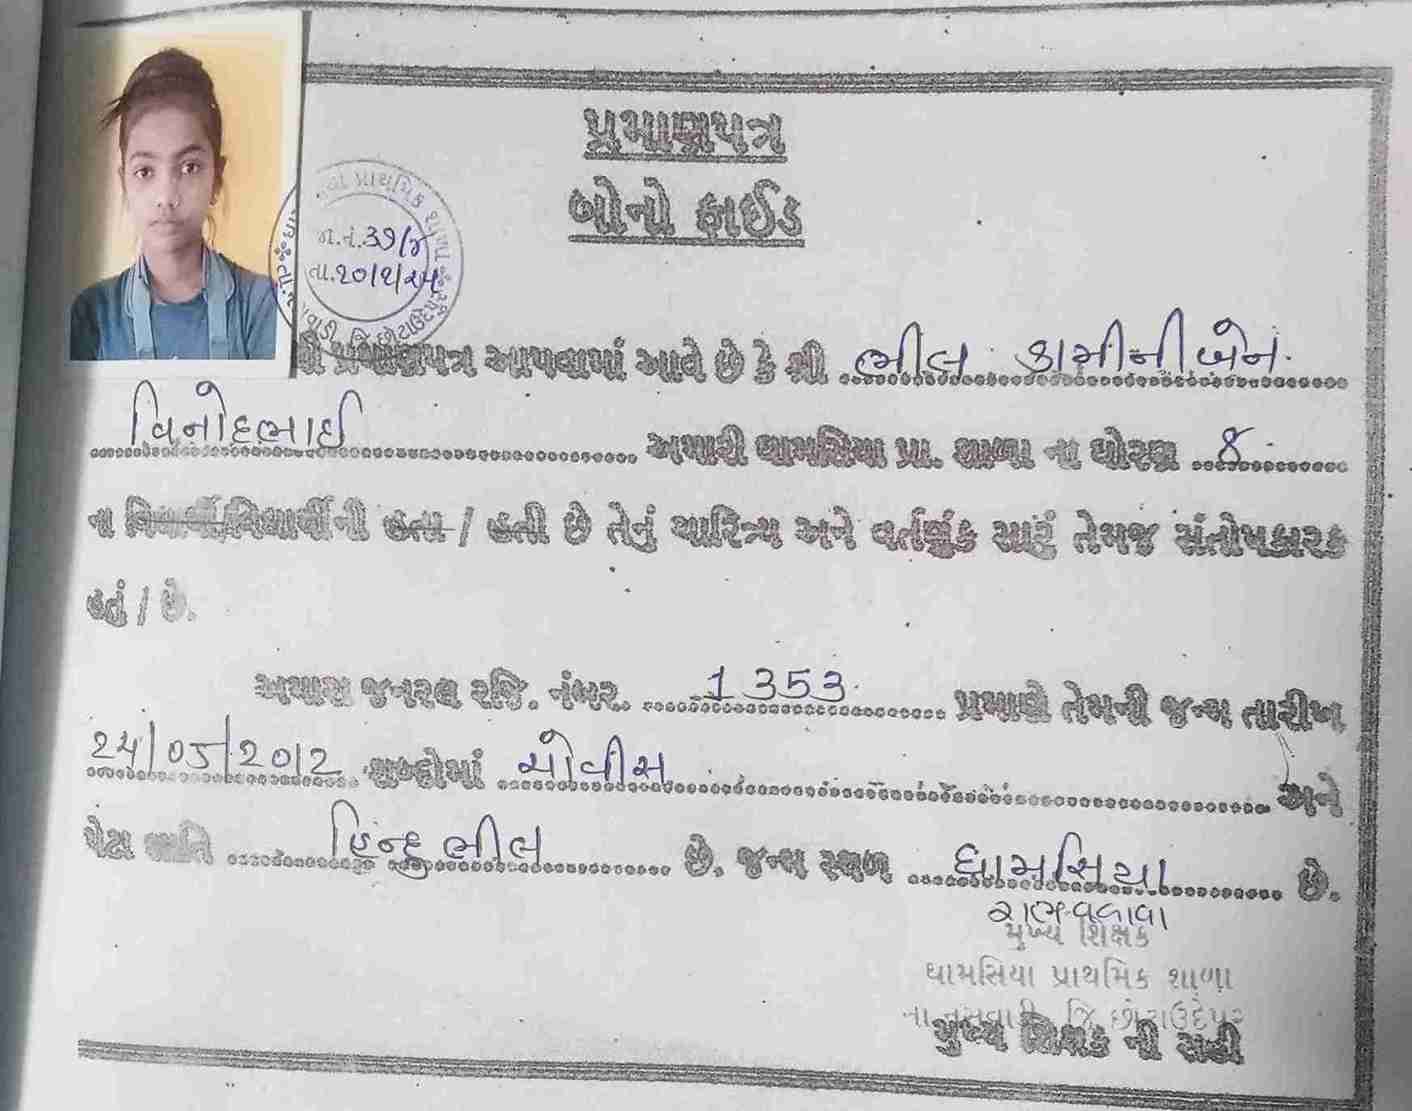 પ્રમાણપત્ર
બોનો ફાઈડ
પ્રાથમિક શાળા
જા.નં.૩૭/૪
તા.૨૦/૨/૨૫
પ્રમાણપત્ર આપવામાં આવે છે કે શ્રી ભીલ કામીનીબેન
વિનોદભાઈ અમારી ઘામસિયા પ્રા. શાળા ના ધોરણ ૪
ના વિદ્યાર્થી/વિદ્યાર્થીની હતા / હતી છે તેનું ચારિત્ર્ય અને વર્તણુંક સારું તેમજ સંતોષકારક
હતું / છે.
અમારા જનરલ રજિ. નંબર. 1353 પ્રમાણે તેમની જન્મ તારીખ
24/05/2012 શબ્દોમાં ચોવીસ અને
પેટા જાતિ હિન્દુ ભીલ છે. જન્મ સ્થળ ઘામસિયા છે.
મુખ્ય શિક્ષક
ઘામસિયા પ્રાથમિક શાળા
તા.નસવાડી જિ.છોટાઉદેપુર
મુખ્ય શિક્ષક ની સહી